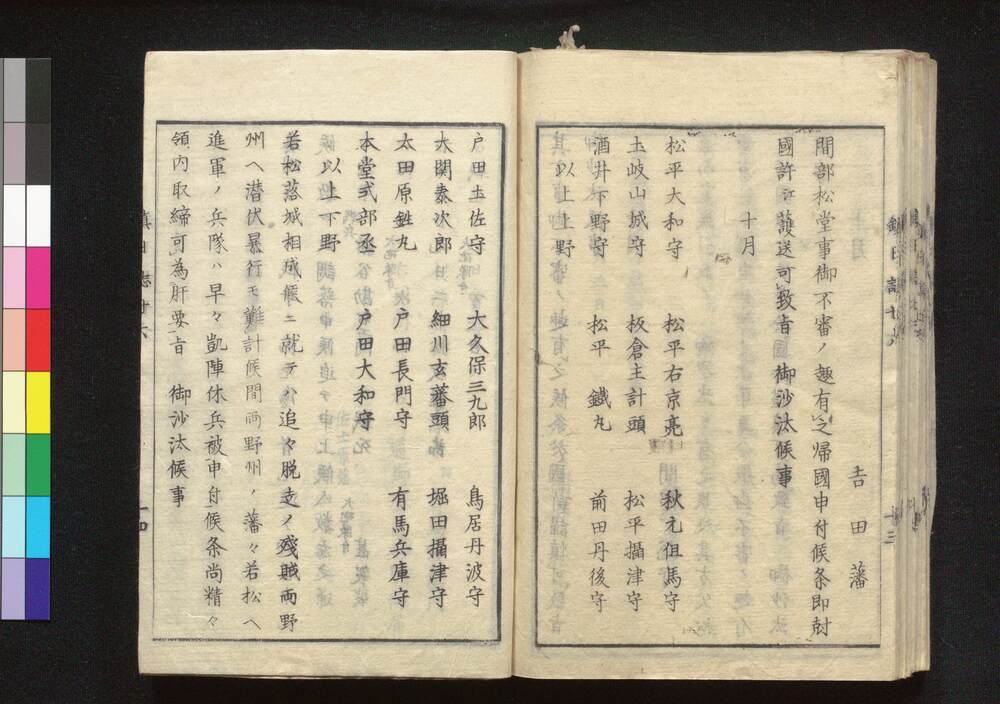 吉田藩
間部松堂事御不審ノ趣有之帰國申付候条即刻
國許江護送可致旨御沙汰候事
十月
松平大和守 松平右京亮 秋元但馬守
土岐山城守 板倉主計頭 松平攝津守
酒井下野守 松平鐵丸 前田丹後守
以上上野
戸田土佐守 大久保三九郎 鳥居丹波守
大関泰次郎 細川玄蕃頭 堀田攝津守
太田原鉎丸 戸田長門守 有馬兵庫守
本堂式部丞 戸田大和守
以上下野
若松落城相成候ニ就テハ追々脱走ノ残賊両野
州ヘ潜伏暴行モ難計候間両野州ノ藩々若松ヘ
進軍ノ兵隊ハ早々凱陣休兵被申付候条尚精々
領内取締可為肝要旨 御沙汰候事
鎮日誌廿六
十三
十四